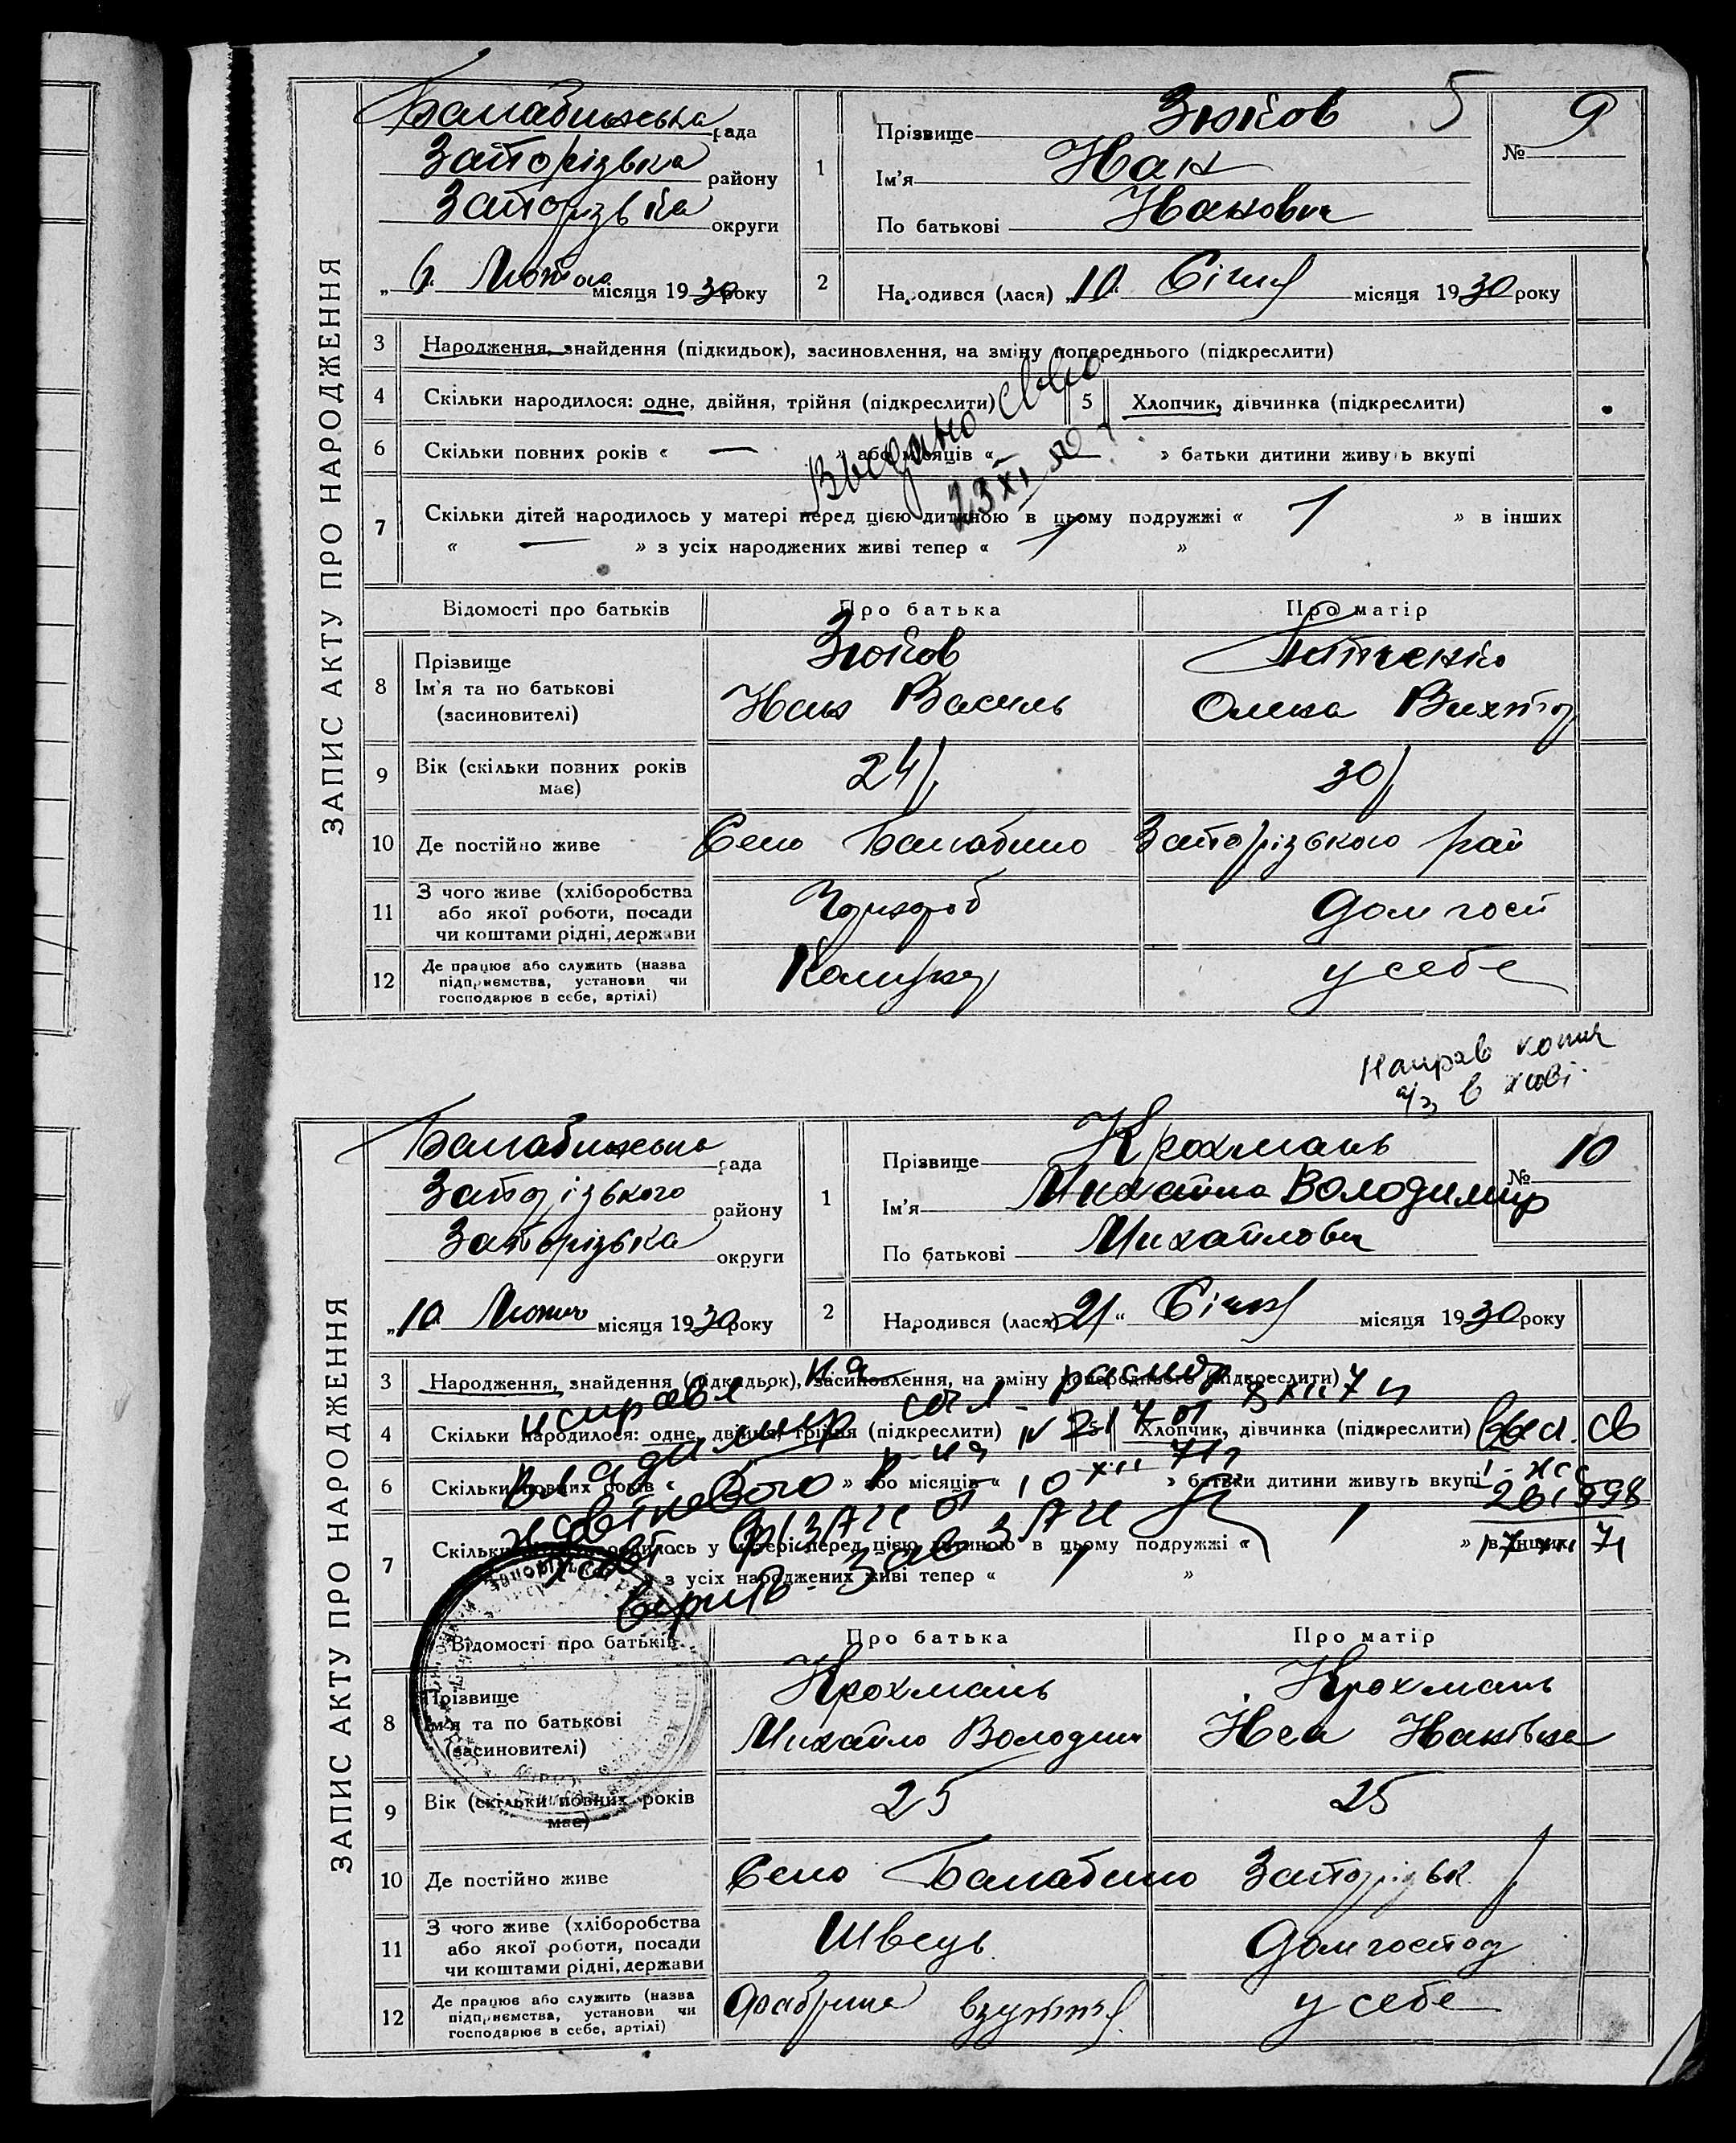 ЗАПИС АКТУ ПРО НАРОДЖЕННЯ
Балабинська рада
Запорізька району
Запорізька округи
„6. Лютого місяця 1930 року
1
Прізвище Зюков
5
Ім'я Иван
По батькові Иванович
№ 9
2
Народився (лася) „10. Січня місяця 1930 року
3 Народження, знайдення (підкидьок), засиновлення, на зміну попереднього (підкреслити)
4 Скільки народилося: одне, двійня, трійня (підкреслити) 5 Хлопчик, дівчинка (підкреслити)
6 Скільки повних років « — » або місяців « » батьки дитини живуть вкупі
Выдано св-во
23 XI 50
7 Скільки дітей народилось у матері перед цією дитиною в цьому подружжі « 1 » в інших
« — » з усіх народжених живі тепер « 1 »
Відомості про батьків Про батька Про матір
8 Прізвище Зюков
Ім'я та по батькові Иван Василь Олена
(засиновителі)
9 Вік (скільки повних років має) 24 30
10 Де постійно живе Село Балабино Запорізького рай
11 З чого живе (хліборобства або якої роботи, посади чи коштами рідні, держави Дом госп
12 Де працює або служить (назва підприємства, установи чи господарює в себе, артілі) у себе
Направ копия
а/з в
ЗАПИС АКТУ ПРО НАРОДЖЕННЯ
Балабинська рада
Запорізького району
Запорізька округи
„10. Лютого місяця 1930 року
1
Прізвище Крохмаль
Ім'я Михайло Володимир
По батькові Михайлович
№ 10
2
Народився (лася) „21“ Січня місяця 1930 року
3 Народження, знайдення (підкидьок), засиновлення, на зміну попереднього (підкреслити)
4 Скільки народилося: одне, двійня, трійня (підкреслити) 5 Хлопчик, дівчинка (підкреслити)
6 Скільки повних років « » або місяців « » батьки дитини живуть вкупі
7 Скільки дітей народилось у матері перед цією дитиною в цьому подружжі « 1 » в інших
» з усіх народжених живі тепер « 1 »
исправл. на
Владимир
10 XII 71
Выд. св
17 XII 71
Відомості про батьків Про батька Про матір
8 Прізвище Крохмаль Крохмаль
Ім'я та по батькові Михайло Володим
(засиновителі)
9 Вік (скільки повних років має) 25 25
10 Де постійно живе Село Балабино Запорізьк.
11 З чого живе (хліборобства або якої роботи, посади чи коштами рідні, держави Швець Дом господ
12 Де працює або служить (назва підприємства, установи чи господарює в себе, артілі) Фабрика взуття у себе